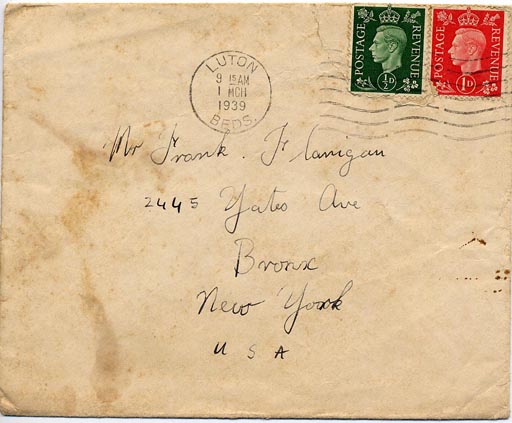 POSTAGE REVENUE
½D
POSTAGE REVENUE
1D
LUTON
9 15 AM
1 MCH
1939
BEDS.
Mr Frank. Flanigan
2445 Yates Ave
Bronx
New York
U S A